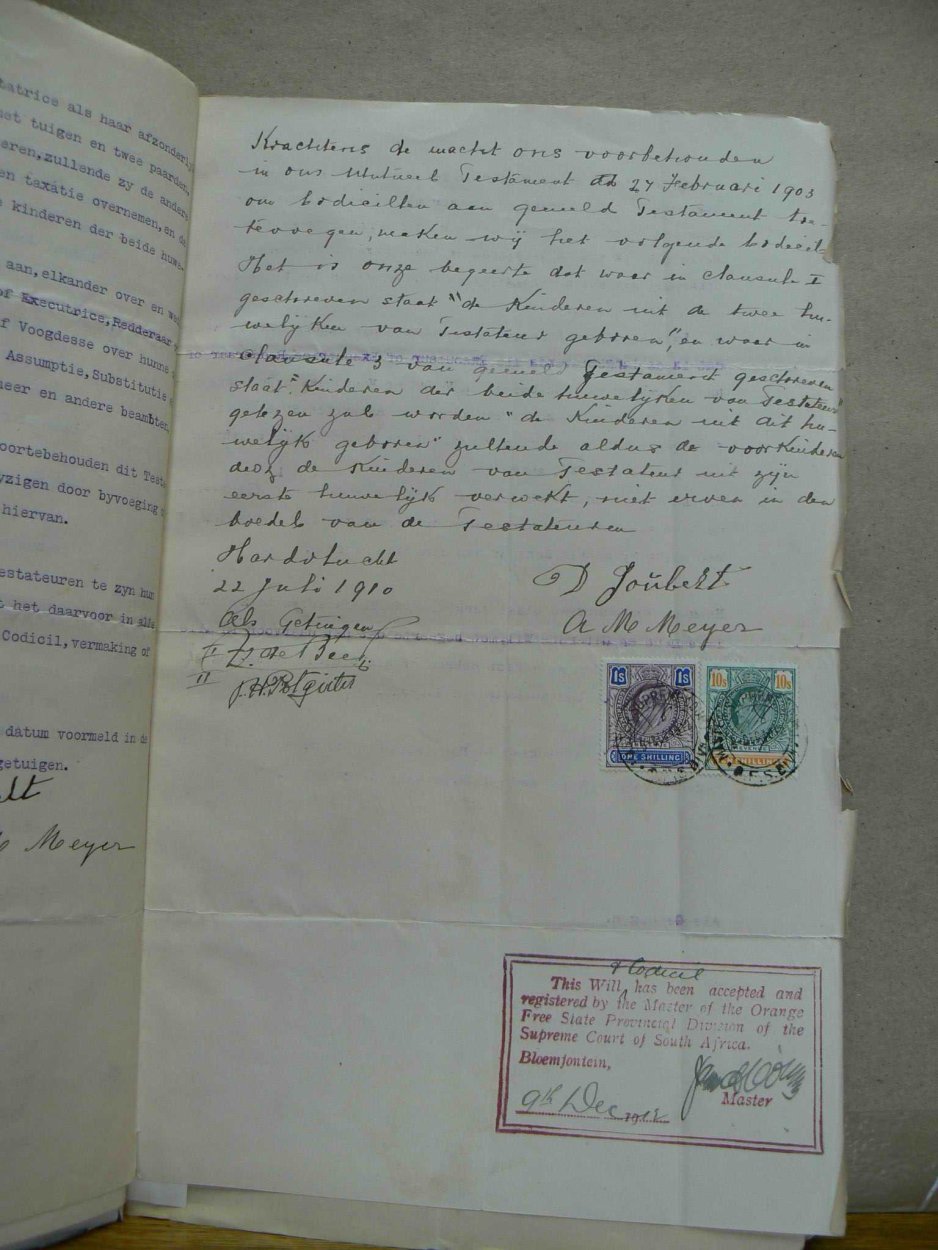 tatrice als haar afzonderly
et tuigen en twee paarden,
eren, zullende zy de andere
en taxatie overnemen, en de
e kinderen der beide huwe
aan, elkander over en wed
of Executrice, Redderaar
f Voogdesse over hunne
Assumptie, Substitutie e
meer en andere beambten
oortebehouden dit Testa
yzigen door byvoeging o
hiervan.
estateuren te zyn hun
t het daarvoor in alle
Codicil, vermaking of
datum voormeld in de
getuigen.
M Meyer
Krachtens de macht ons voorbehouden
in ons Mutueel Testament dd 27 Februari 1903
om Codicillen aan gemeld Testament toe
tevoegen, maken wij het volgende Codicil.
Het is onze begeerte dat waar in Clausule I
geschreven staat "de Kinderen uit de twee hu-
welijken van Testateur geboren", en waar in
Clausule 3 van gemeld Testament geschreven
staat "Kinderen der beide huwelijken van Testateur"
gelezen zal worden "de Kinderen uit dit hu-
welijk geboren" zullende aldus de voorkinderen
desz de Kinderen van Testateur uit zijn
eerste huwelijk verwekt, niet erven in den
boedel van de Testateuren
Hardvlucht
22 Juli 1910
D Joubert
Als Getuigen
A M Meyer
P. H. Potgieter
1s 1s
ONE SHILLING
10s 10s
REVENUE
& Codicil
This Will has been accepted and
registered by the Master of the Orange
Free State Provincial Division of the
Supreme Court of South Africa.
Bloemfontein,
9th Dec 1912
Master